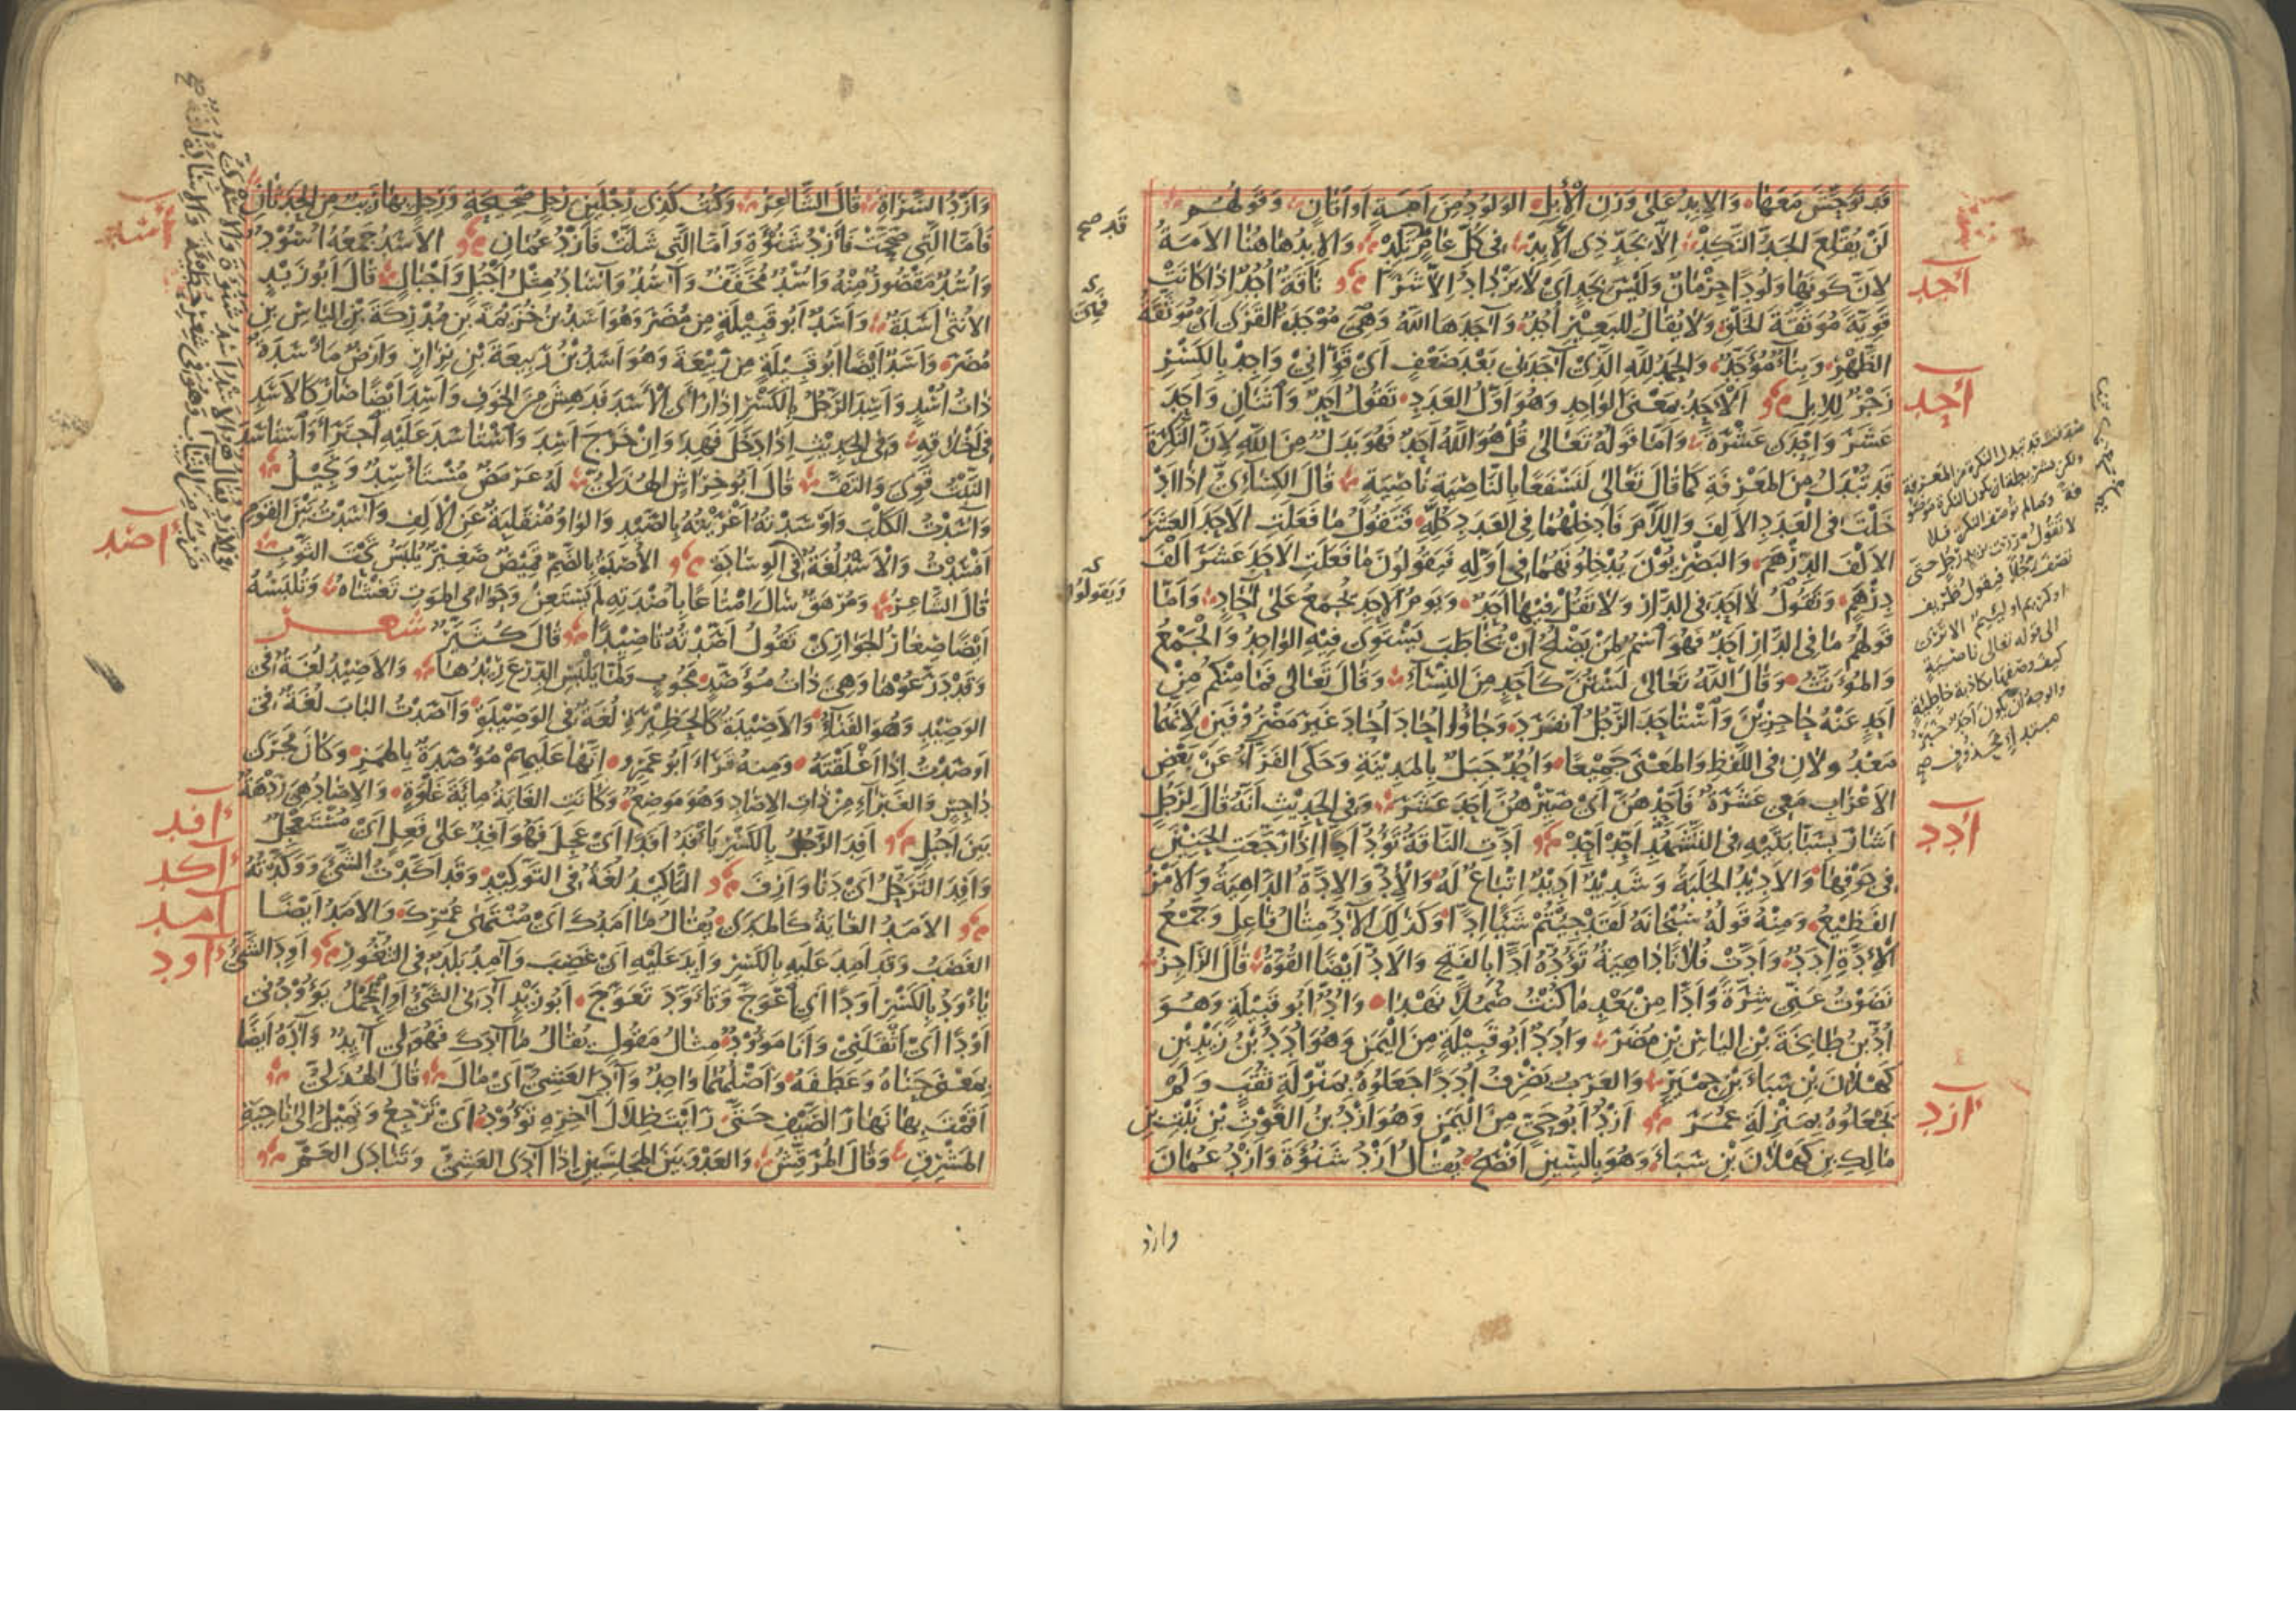 قد توحش معها والابد على وزن الابل الولود من امة او اتان وقولهم
لن يقلع الجد النكد الا بجد ذي الابد في كل عام تلد والابد هاهنا الامة
لان كونها ولودا حرمان وليس بجد اي لا يزداد الا شرا ناقة اجد اذا كانت
قوية موثقة الخلق ولا يقال للبعير اجد وآجدها الله وهي موجدة القرى اي موثقة
الظهر وبناء مؤجد والحمد لله الذي آجدني بعد ضعف اي قواني واجد بالكسر
زجر للابل الاحد بمعنى الواحد وهو اول العدد تقول احد واثنان واحد
عشر واحدى عشرة واما قوله تعالى قل هو الله احد فهو بدل من الله لان النكرة
قد تبدل من المعرفة كما قال تعالى لنسفعا بالناصية ناصية قال الكسائي اذا اد
خلت في العدد الالف واللام فادخلهما في العدد كله فتقول ما فعلت الاحد العشر
الالف الدرهم والبصريون يدخلونهما في اوله فيقولون ما فعلت الاحد عشر الف
درهم وتقول لا احد في الدار ولا تقل فيها احد ويوم الاحد يجمع على آحاد واما
قولهم ما في الدار احد فهو اسم لمن يصلح ان يخاطب يستوي فيه الواحد والجمع
والمؤنث وقال الله تعالى لستن كاحد من النساء وقال تعالى فما منكم من
احد عنه حاجزين واستاحد الرجل انفرد وجاؤا احاد احاد غير مصروفين لانهما
معدولان في اللفظ والمعنى جميعا واحد جبل بالمدينة وحكى الفراء عن بعض
الاعراب معي عشرة فاحدهن اي صيرهن احد عشر وفي الحديث انه قال لرجل
اشار بسبابتيه في التشهد احد احد ادت الناقة تؤد ادا اذا رجعت الحنين
في جوفها والاديد الجلبة وشديد اديد اتباع له والاد والادة الداهية والامر
الفظيع ومنه قوله سبحانه لقد جئتم شيئا ادا وكذلك الآد مثال فاعل وجمع
الادة ادد وادت فلانا داهية تؤده ادا بالفتح والاد ايضا القوة قال الراجز
نضوت عني شرة وادا من بعد ما كنت صملا نهدا واد ابو قبيلة وهو
اد بن طابخة بن الياس بن مضر وادد ابو قبيلة من اليمن وهو ادد بن زيد بن
كهلان بن سباء بن حمير والعرب تصرف اددا جعلوه بمنزلة ثقب ولم
يجعلوه بمنزلة عمر ازد ابو حي من اليمن وهو ازد بن الغوث بن نبت بن
مالك بن كهلان بن سباء وهو بالسين افصح يقال ازد شنوءة وازد عمان
وازد
اجد
احد
ادد
ازد
قد صح
فهي
ويقولون
وازد السراة قال الشاعر وكنت كذي رجلين رجل صحيحة ورجل بها ريب من الحدثان
فاما التي صحت فازد شنوءة واما التي شلت فازد عمان الاسد جمعه اسود
واسد مقصور منه واسد مخفف وآسد وآساد مثل اجبل واجبال قال ابو زيد
الانثى اسدة واسد ابو قبيلة من مضر وهو اسد بن خزيمة بن مدركة بن الياس بن
مضر واسد ايضا ابو قبيلة من ربيعة وهو اسد بن ربيعة بن نزار وارض ماسدة
ذات اسد واسد الرجل بالكسر اذا رأى الاسد فدهش من الخوف واسد ايضا صار كالاسد
في اخلاقه وفي الحديث اذا دخل فهد وان خرج اسد واستاسد عليه اجترأ واستاسد
النبت قوي والتف قال ابو خراش الهذلي له عرمض مستاسد ونجيل
وآسدت الكلب واوسدته اغريته بالصيد والواو منقلبة عن الالف وآسدت بين القوم
افسدت والاسادة لغة في الوسادة الاصدة بالضم قميص صغير يلبس تحت الثوب
قال الشاعر ومرهق سال امتاعا باصدته لم يستعن وحوامي الموت تغشاه وتلبسه
ايضا صغار الجواري تقول اصدته تاصيدا قال كثير شعر
وقد درعوها وهي ذات مؤصد مجوب ولما يلبس الدرع ريدها والاصيد لغة في
الوصيد وهو الفناء والاصيدة كالحظيرة لغة في الوصيدة وآصدت الباب لغة في
اوصدت اذا اغلقته ومنه قراء ابو عمرو انها عليهم مؤصدة بالهمز وكان مجرى
داحس والغبراء من ذات الاصاد وهو موضع وكانت الغاية مائة غلوة والاصاد هي ردهة
بين اجبل افد الرجل بالكسر يافد افدا اي عجل فهو افد على فعل اي مستعجل
وافد الترحل اي دنا وازف التاكيد لغة في التوكيد وقد اكدت الشئ ووكدته
الامد الغاية كالمدى يقال ما امدك اي منتهى عمرك والامد ايضا
الغضب وقد امد عليه بالكسر وابد عليه اي غضب وآمد بلد في الثغور اود الشئ
ياود بالكسر اودا اي اعوج وتاود تعوج ابو زيد آدني الشئ او الحمل يؤودني
اودا اي اثقلني وانا مؤود مثال مقول يقال ما آدك فهو لي آيد وآده ايضا
بمعنى حناه وعطفه واصلهما واحد وآد العشي اي مال قال الهذلي
اقمت بها نهار الصيف حتى رايت ظلال آخره تؤود اي ترجع وتميل الى ناحية
المشرق وقال المرقش والعدو بين المجلسين اذا آد العشي وتنادى العم
اسد
اصد
افد
اكد
امد
اود